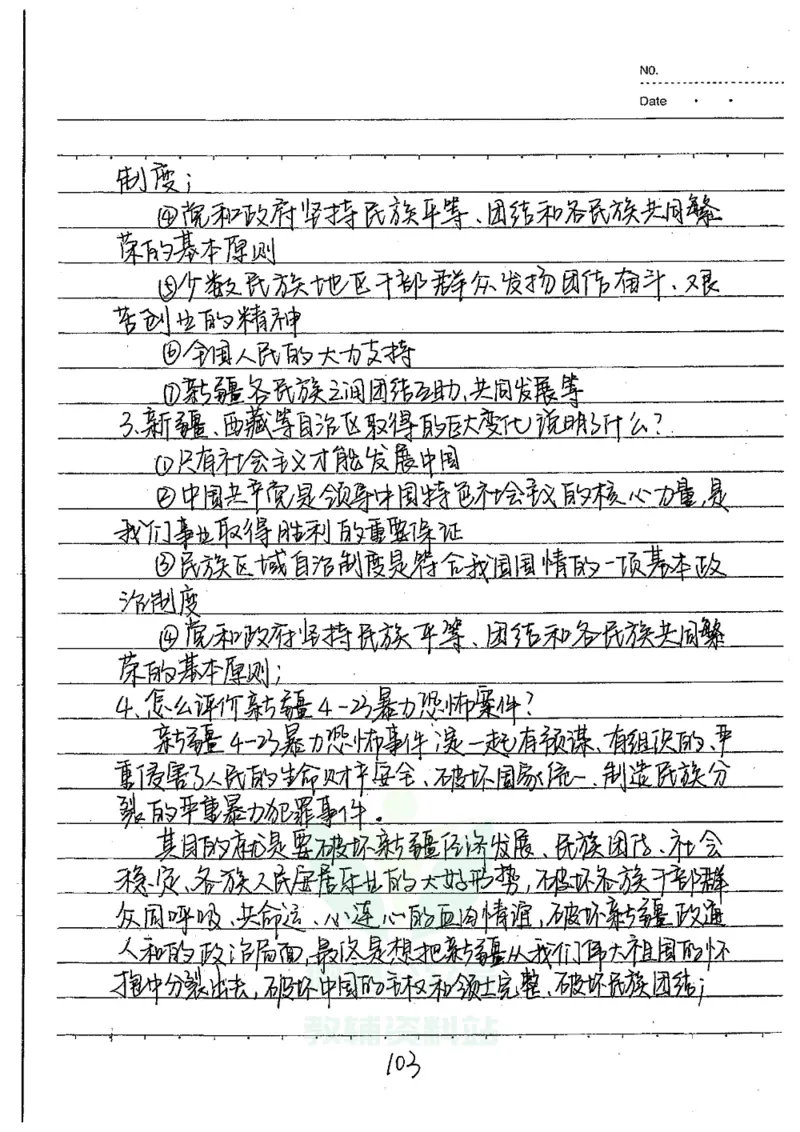 NO.
Date
制度；
④党和政府坚持民族平等、团结和各民族共同繁
荣的基本原则
⑤少数民族地区干部群众发扬团结奋斗、艰
苦创业的精神
⑥全国人民的大力支持
⑦新疆各民族之间团结互助，共同发展等
3、新疆、西藏等自治区取得的巨大变化说明了什么？
①只有社会主义才能发展中国
②中国共产党是领导中国特色社会主义的核心力量，是
我们事业取得胜利的重要保证
③民族区域自治制度是符合我国国情的一项基本政
治制度
④党和政府坚持民族平等、团结和各民族共同繁
荣的基本原则；
4、怎么评价新疆4-23暴力恐怖案件？
新疆4-23暴力恐怖事件，是一起有预谋、有组织的、严
重侵害了人民的生命财产安全、破坏国家统一、制造民族分
裂的严重暴力犯罪事件。
其目的就是要破坏新疆经济发展、民族团结、社会
稳定、各族人民安居乐业的大好形势，破坏各族干部群
众同呼吸、共命运、心连心的血肉情谊，破坏新疆政通
人和的政治局面，最终是想把新疆从我们伟大祖国的怀
抱中分裂出去，破坏中国的主权和领土完整、破坏民族团结；
教辅资料站
103